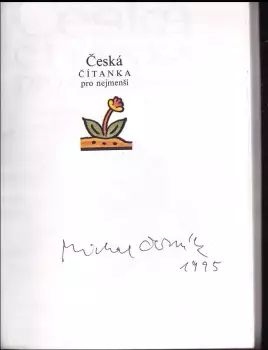 Česká
ČÍTANKA
pro nejmenší
Michal Černík
1995